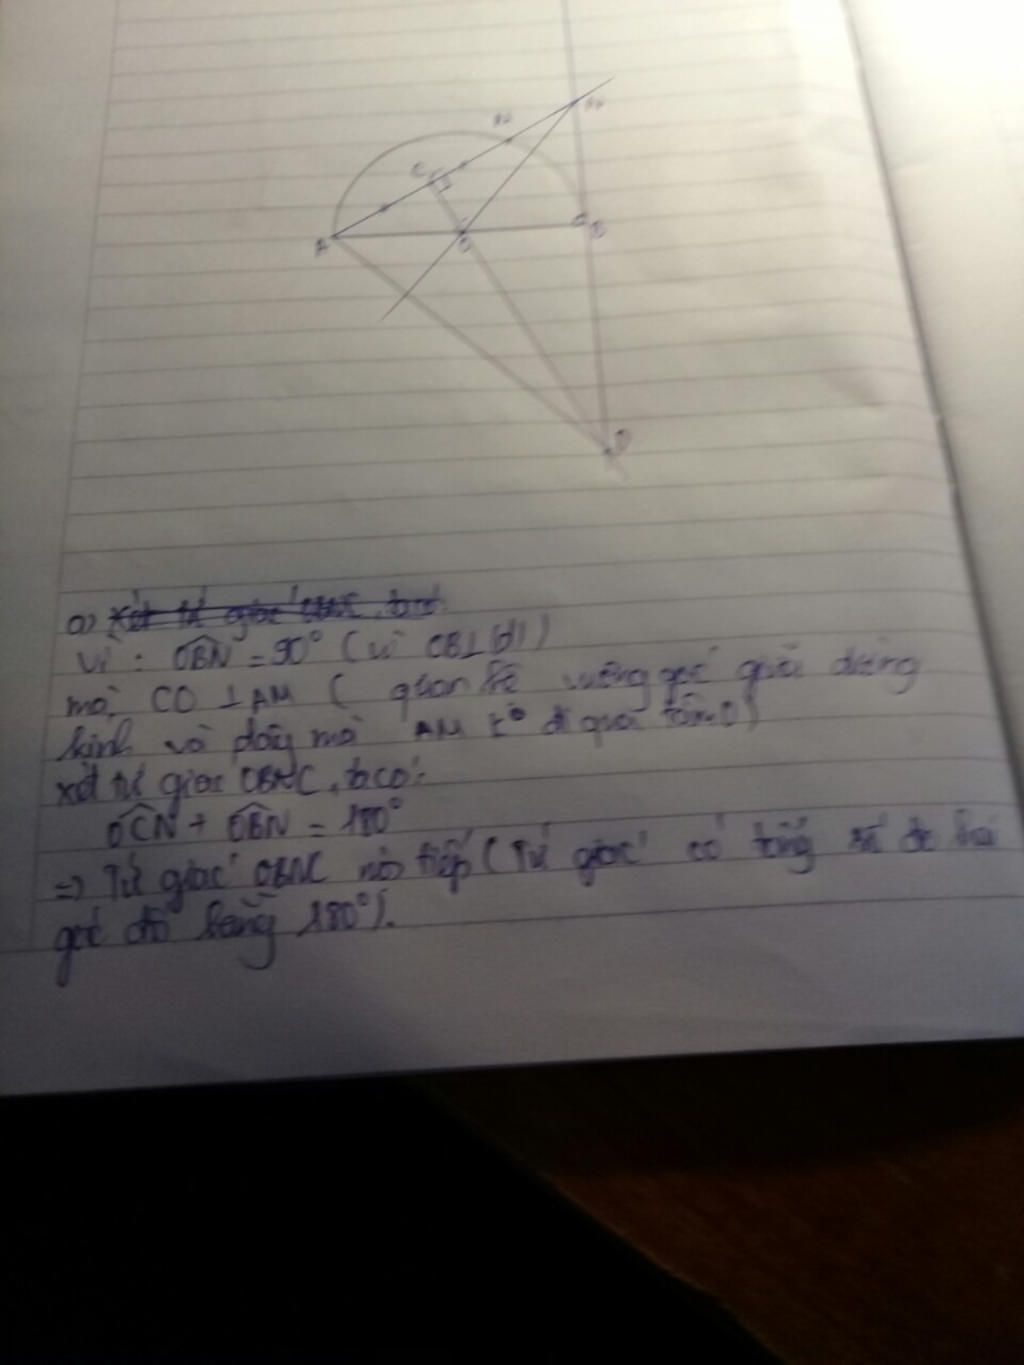 C
A
O
B
D
a) Xét tứ giác OBNC, ta có:
Vì: OBN = 90° (vì OB⊥(d))
mà CO ⊥ AM ( quan hệ vuông góc giữa đường
kính và dây mà AM k° đi qua tâm O)
xét tứ giác OBNC, ta có:
OCN + OBN = 180°
=> Tứ giác OBNC nội tiếp (Tứ giác có tổng số đo hai
góc đối bằng 180°).